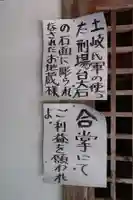 土岐氏軍の使っ
た刑場台石
の石面に彫られ
なされたお地蔵様
合掌にて
ご利益を願われ
よ